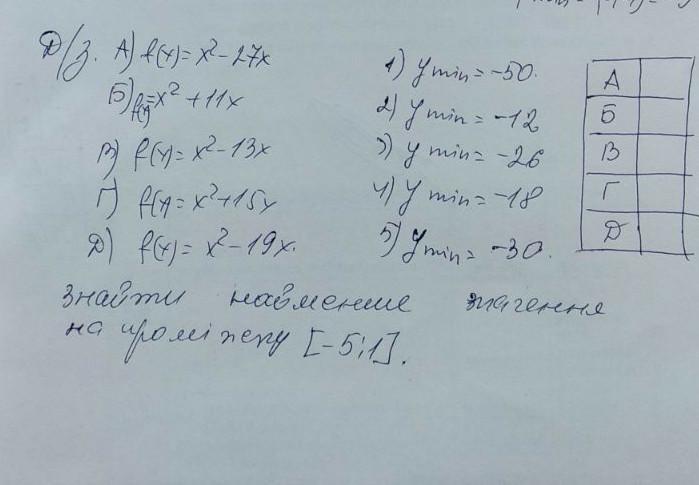 Д/з. А) f(x)=x²-27x
Б) f(x)=x²+11x
В) f(x)=x²-13x
Г) f(x)=x²+15x
Д) f(x)=x²-19x.
1) y min=-50.
2) y min=-12
3) y min=-26
4) y min=-18
5) y min=-30.
А
Б
В
Г
Д
знайти найменше значення
на проміжку [-5;1].